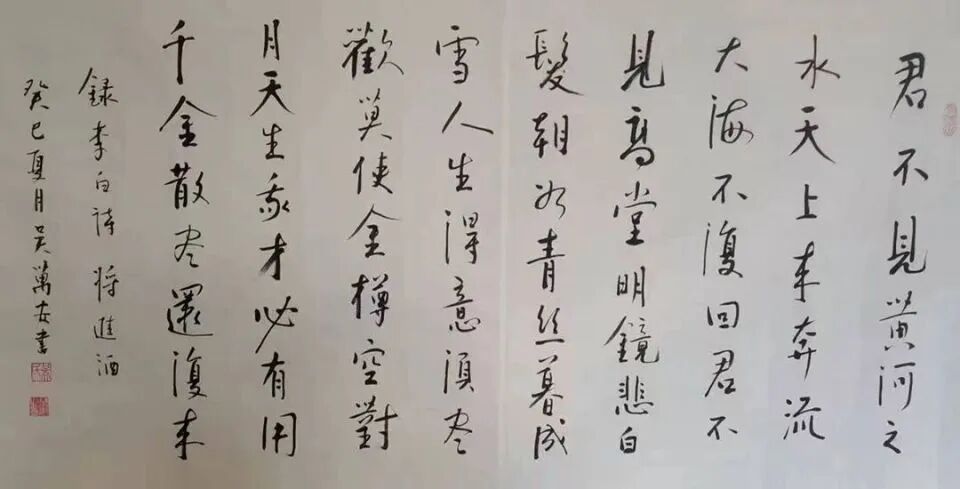 君不見黄河之
水天上来奔流
大海不復回君不
見高堂明鏡悲白
髮朝如青丝暮成
雪人生得意須尽
歡莫使金樽空對
月天生我才必有用
千金散尽還復来
録李白詩 将進酒
癸巳夏月吴萬安書